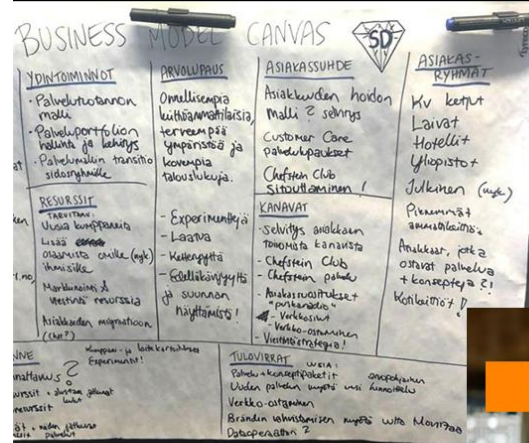 BUSINESS MODEL CANVAS SD
YDINTOIMINNOT
- Palvelutuotannon
malli
- Palveluportfolion
hallinta ja kehitys
- Palvelumallin transitio
sidosryhmille
RESURSSIT
TARVITAAN:
Uusia kumppaneita
Lisää
osaamista omille (nyk.)
ihmisille
Markkinointi &
viestintä resurssia
Asiakkuuden migraatioon
ARVOLUPAUS
Onnellisempia
keittiöammattilaisia,
terveempää
ympäristöä ja
kovempia
talouslukuja.
- Experimenttejä
- Laatua
- Ketteryyttä
- Edelläkävijyyttä
ja suunnan
näyttämistä!
ASIAKASSUHDE
Asiakkuuden hoidon
malli ? selvitys
Customer Care
palvelulupaukset
Chefstein Club
Sitouttaminen!
KANAVAT
- Selvitys asiakkaan
toivomista kanavista
- Chefstein Club
- Chefstein palvelu
- Asiakassuositukset
"puskaradio"
- Verkkosivut
- Verkko-ostaminen
- Viestintästrategia!
ASIAKAS-
RYHMÄT
Kv ketjut
Laivat
Hotellit
Yliopistot
Julkinen (nyk)
Pienemmät
ammattikeittiöt
Asiakkaat, jotka
ostavat palvelua
+ konsepteja ?!
Kotikeittiöt !
Experimentit!
TULOVIRRAT
UUSIA:
Palvelu + konseptipaketit
Uuden palvelun myötä uusi hinnoittelu
Verkko-ostaminen
Brändin vahvistamisen myötä
Dataoperaattori ?